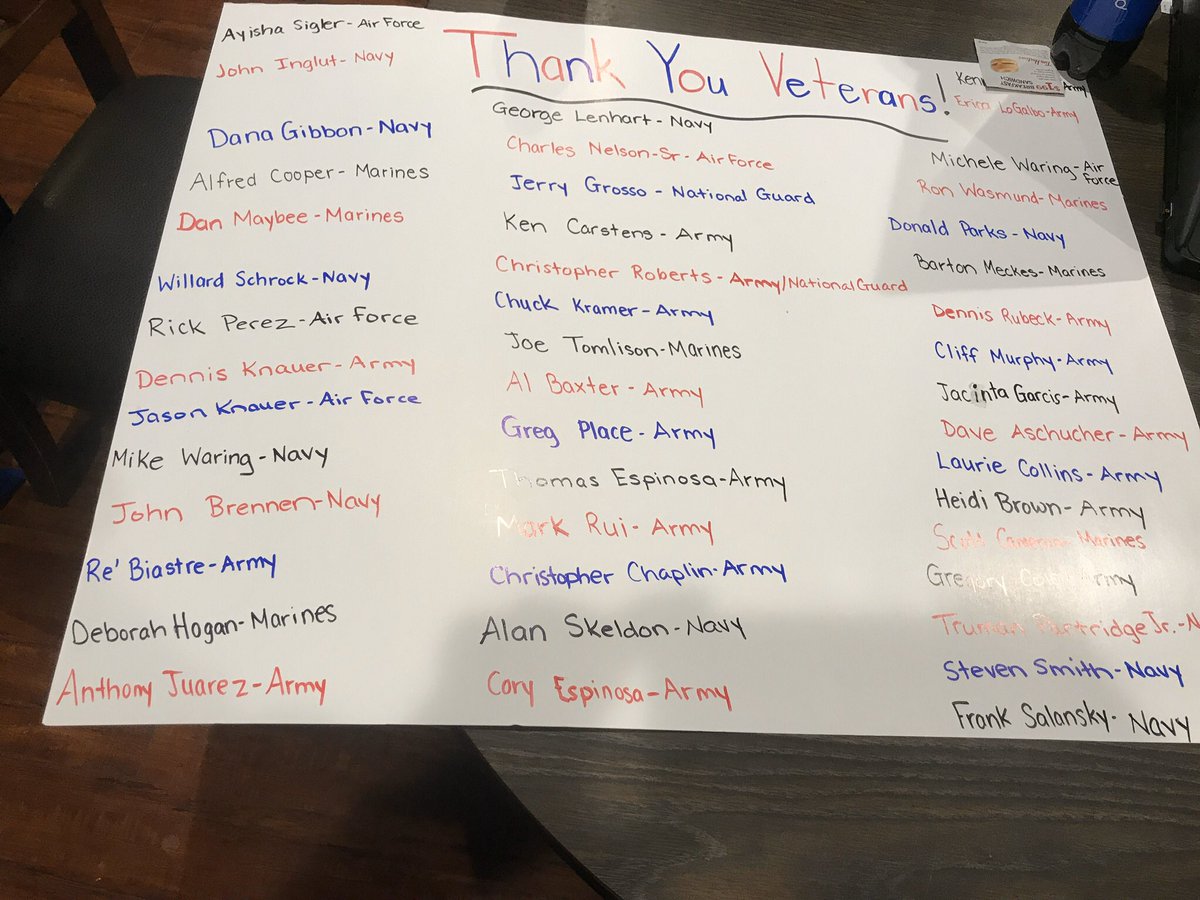 Thank You Veterans!
Ayisha Sigler - Air Force
John Inglut - Navy
Dana Gibbon - Navy
Alfred Cooper - Marines
Dan Maybee - Marines
Willard Schrock - Navy
Rick Perez - Air Force
Dennis Knauer - Army
Jason Knauer - Air Force
Mike Waring - Navy
John Brennen - Navy
Re' Biastre - Army
Deborah Hogan - Marines
Anthony Juarez - Army
George Lenhart - Navy
Charles Nelson - Sr - Air Force
Jerry Grosso - National Guard
Ken Carstens - Army
Christopher Roberts - Army/National Guard
Chuck Kramer - Army
Joe Tomlison - Marines
Al Baxter - Army
Greg Place - Army
Thomas Espinosa - Army
Mark Rui - Army
Christopher Chaplin - Army
Alan Skeldon - Navy
Cory Espinosa - Army
Army
Erica LoGalbo - Army
Michele Waring - Air
Force
Ron Wasmund - Marines
Donald Parks - Navy
Barton Meckes - Marines
Dennis Rubeck - Army
Cliff Murphy - Army
Jacinta Garcis - Army
Dave Aschucher - Army
Laurie Collins - Army
Heidi Brown - Army
Scott Cameron - Marines
Gregory Army
Truman Partridge Jr. -
Steven Smith - Navy
Frank Salansky - Navy
BREAKFAST
SANDWICH